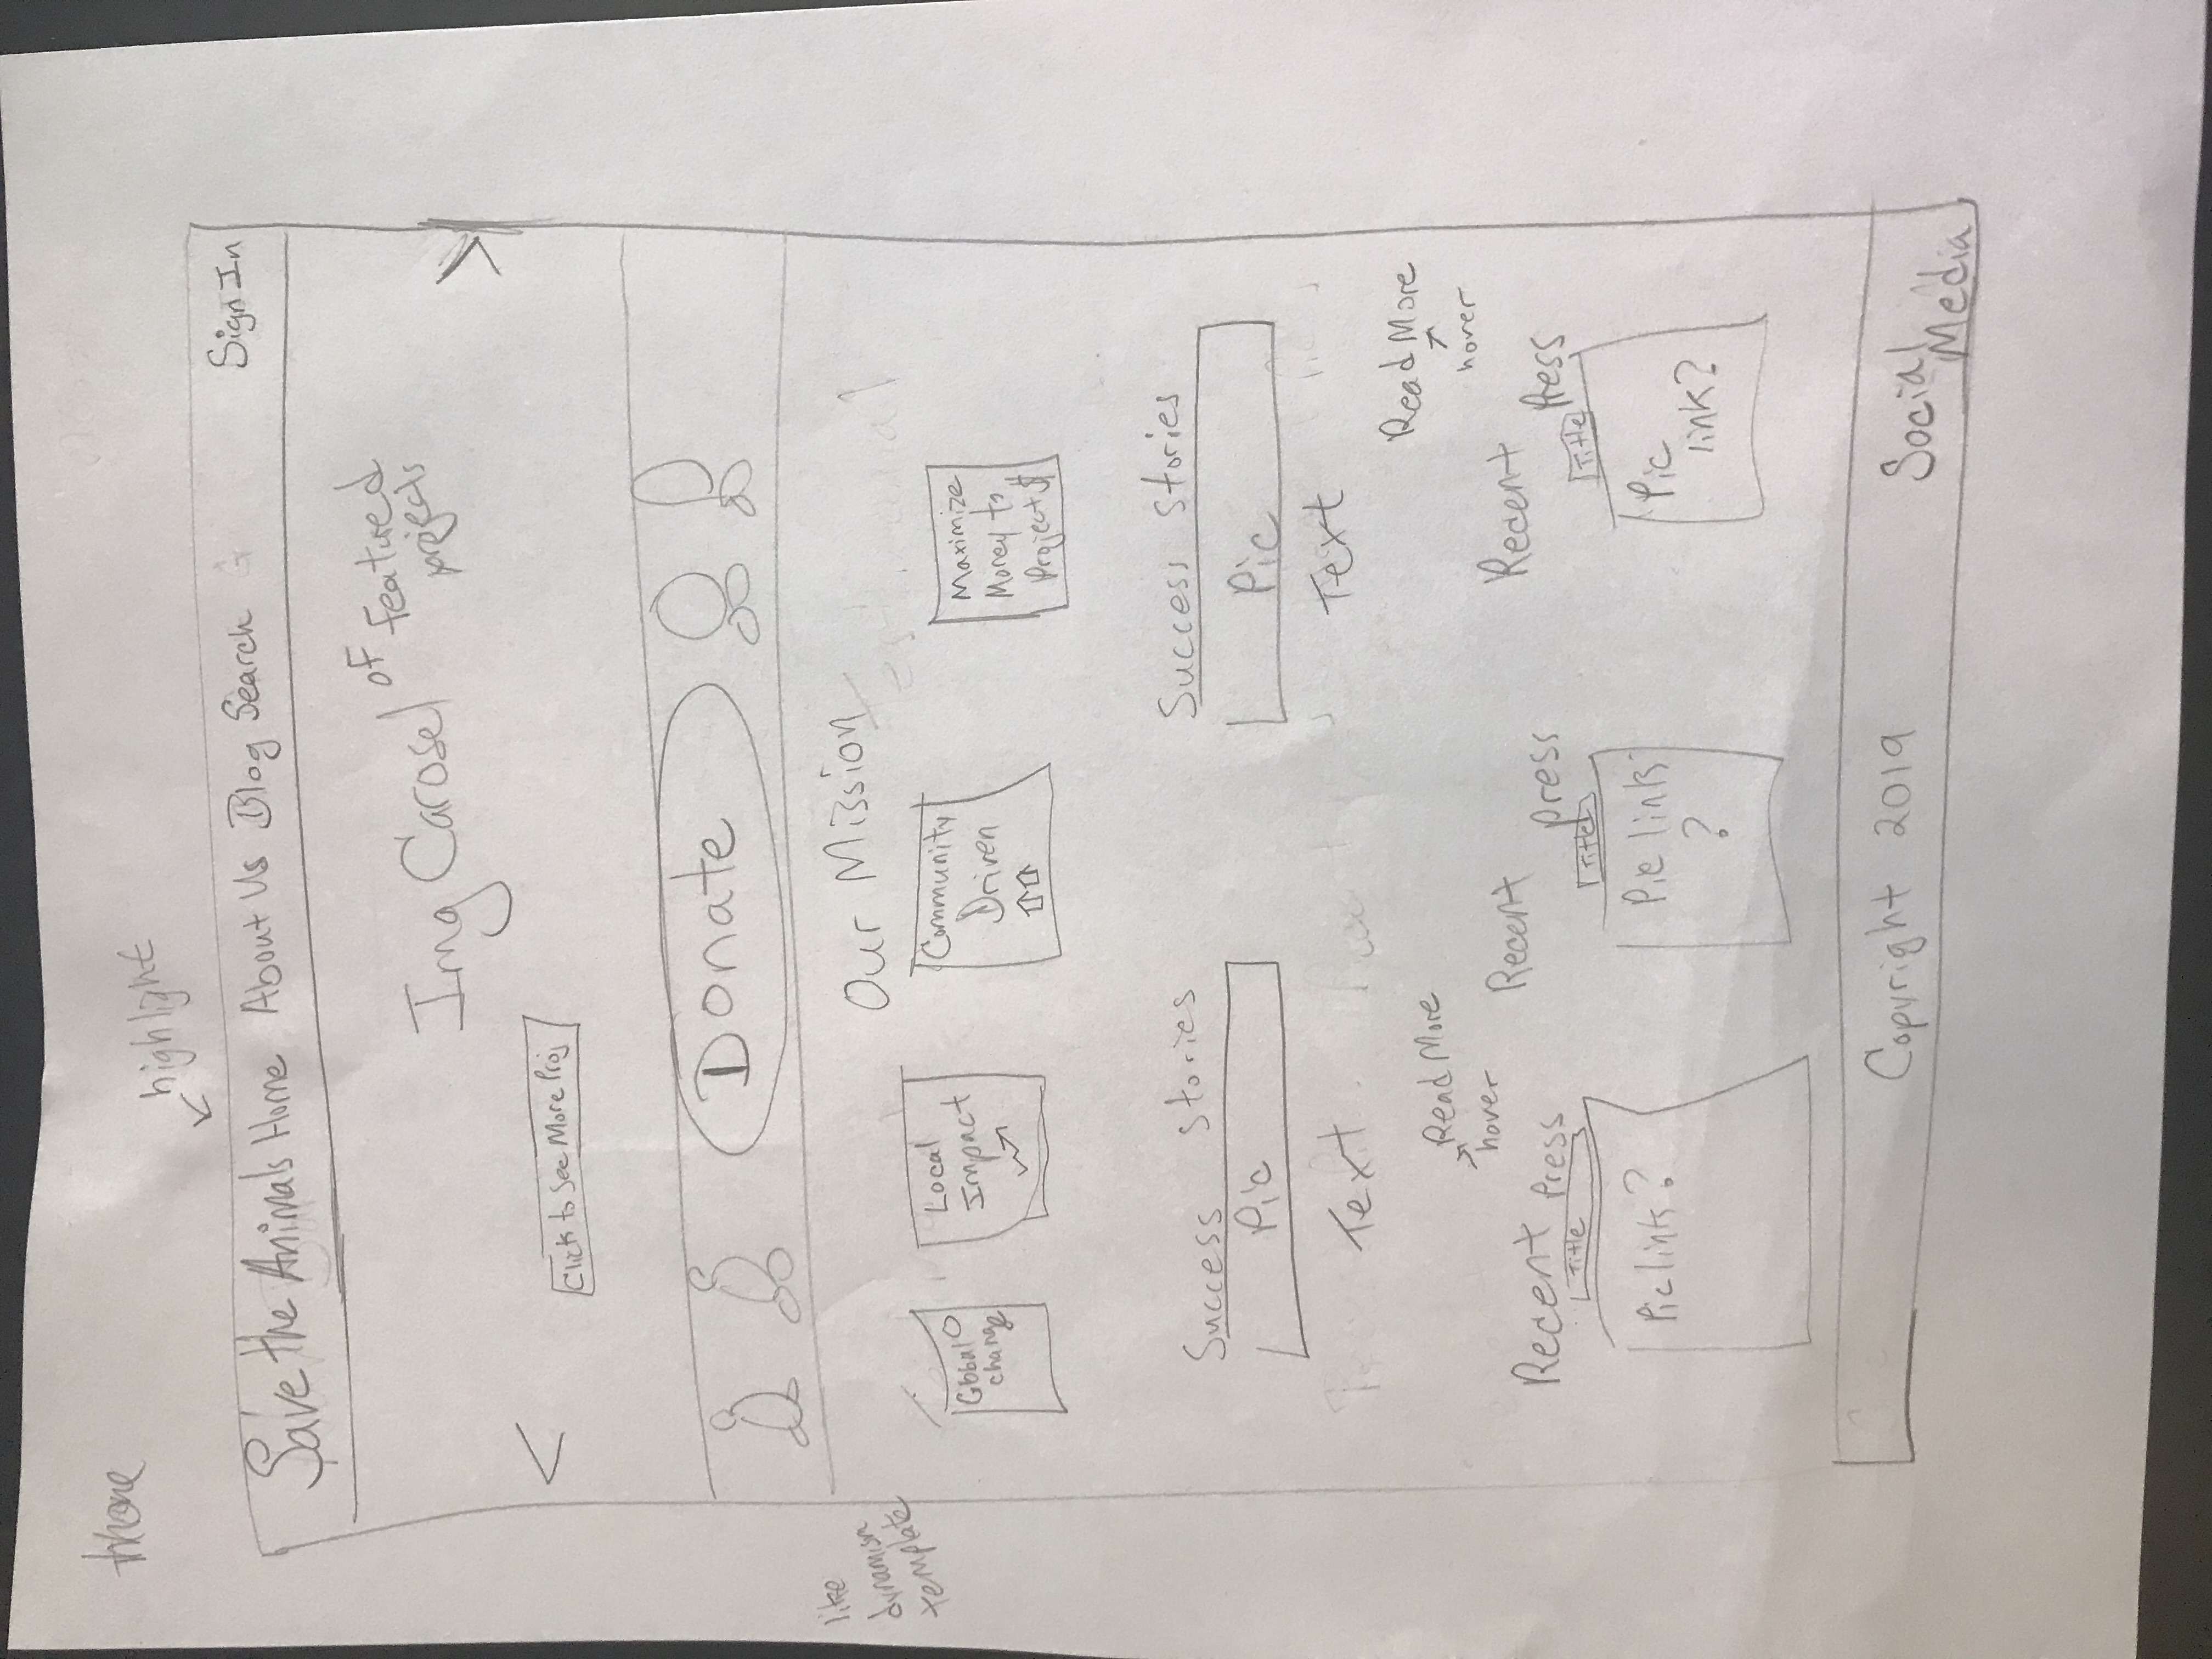 Home
highlight
Save the Animals Home About Us Blog Search Sign In
Img Carosel of Featured
projects
Click to See More Proj
Donate
like
dynamism
template
Our Mission
Global
change
Local
Impact
Community
Driven
Maximize
Money to
Project $
Success Stories
Pic
Text
Read More
hover
Success Stories
Pic
Text
Read More
hover
Recent Press
Title
Pic links?
Recent
press
Title
Pic links
?
Recent
Press
Title
Pic
link?
Copyright 2019
Social
Media